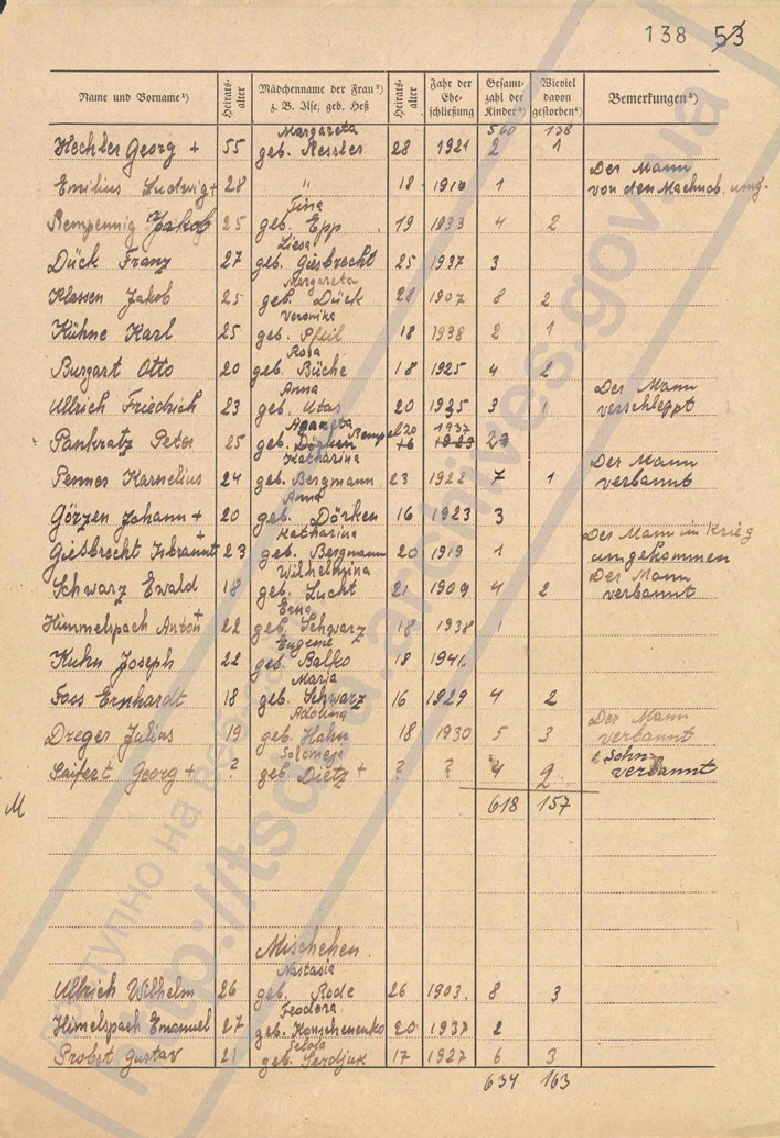 138 53
Name und Vorname¹) Heiratsalter Mädchenname der Frau²) z. B. Ilse, geb. Heß Heiratsalter Jahr der Eheschließung Gesamtzahl der Kinder³) Wieviel davon gestorben⁴) Bemerkungen⁵)
560 138
Margareta
Hechler Georg + 55 geb. Ressler 28 1921 2 1
Der Mann
Emilius Ludwig + 28 " 18 1910 1 von den Machnob. umg.
Tina
Rempennig Jakob 25 geb. Epp 19 1933 4 2
Liesa
Dück Franz 27 geb. Giesbrecht 25 1937 3
Margareta
Klassen Jakob 25 geb. Dück 28 1907 8 2
Veronika
Kühne Karl 25 geb. Pfeil 18 1938 2 1
Rosa
Burgart Otto 20 geb. Büche 18 1925 4 2
Anna Der Mann
Ullrich Friedrich 23 geb. Utas 20 1935 3 1 verschleppt
Aganeta 1937
Pankratz Peter 25 geb. Dörksen Rempel 20
Katharina Der Mann
Penner Karnelius 24 geb. Bergmann 23 1922 7 1 verbannt
Anna
Görzen Johann + 20 geb. Dörken 16 1923 3
Katharina Der Mann im Krieg
Giesbrecht Isbrandt 23 geb. Bergmann 20 1919 1 umgekommen
Wilhelmina Der Mann
Schwarz Ewald 18 geb. Lucht 21 1909 4 2 verbannt
Erna
Himmelspach Anton + 22 geb. Schwarz 18 1938 1
Eugenie
Kuhn Joseph 22 geb. Balko 18 1941.
Marja
Foos Ernhardt 18 geb. Schwarz 16 1929 4 2
Adolina Der Mann
Dreger Julius 19 geb. Hahn 18 1930 5 3 verbannt
Solomeja Sohn
Seifert Georg + ? geb. Dietz + ? ? 4 2 verbannt
M 618 157
Mischehen.
Nastasia
Ullrich Wilhelm 26 geb. Rode 26 1903. 8 3
Feodora
Himelspach Emanuel 27 geb. Konschenenko 20 1937 2
Probst Gustav 21 geb. Serdjuk 17 1927 6 3
634 163
http://tsdea.archives.gov.ua